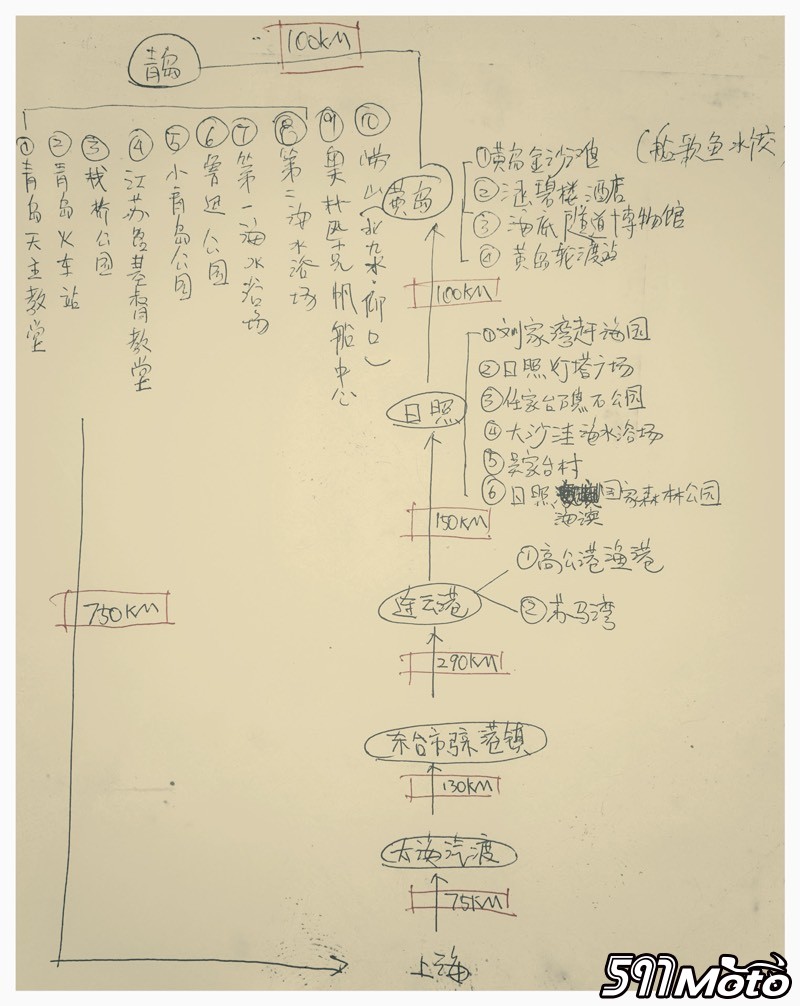 青岛
100KM
①青岛天主教堂
②青岛火车站
③栈桥公园
④江苏路基督教堂
⑤小青岛公园
⑥鲁迅公园
⑦第一海水浴场
⑧第二海水浴场
⑨奥林匹克帆船中心
⑩崂山(北九水·仰口)
黄岛
①黄岛金沙滩
(船歌鱼水饺)
②涵碧楼酒店
③海底隧道博物馆
④黄岛轮渡站
100KM
日照
①刘家湾赶海园
②日照灯塔广场
③任家台礁石公园
④大沙洼海水浴场
⑤吴家台村
⑥日照国家森林公园
海滨
150KM
连云港
①高公港渔港
②苏马湾
290KM
东台市弶港镇
130KM
太海汽渡
75KM
上海
750KM
591Moto